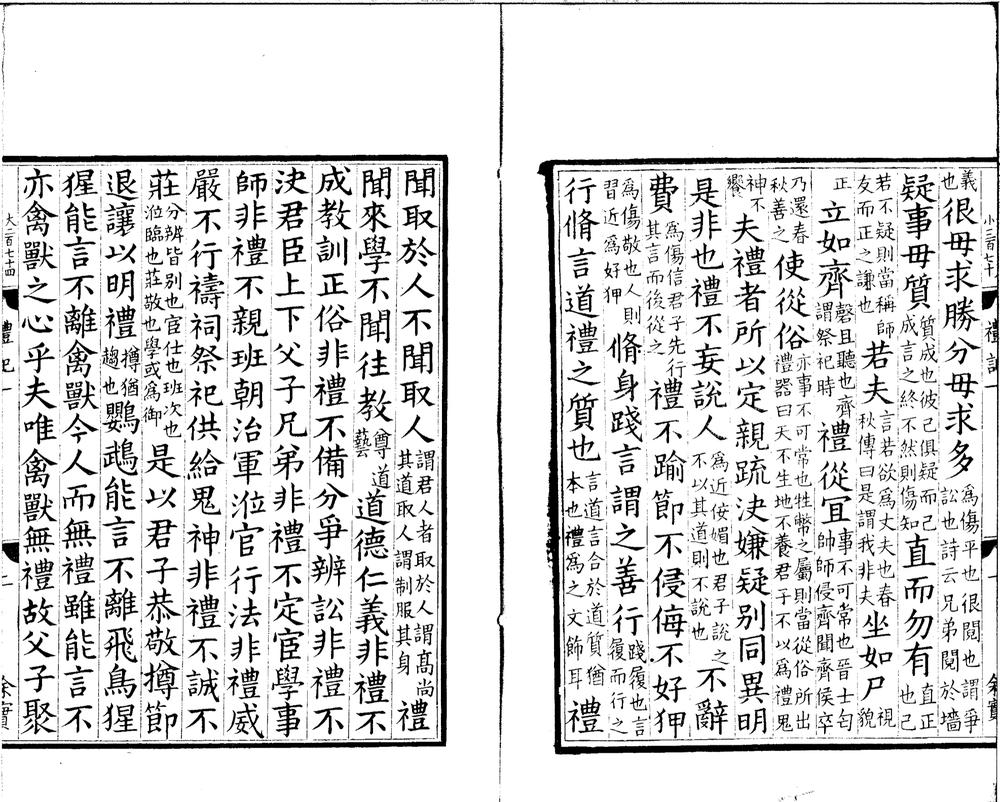 義也很毋求勝分毋求多爲傷平也很閱也謂爭訟也詩云兄弟閱於墻
疑事毋質質成也彼己俱疑而己成言之終不然則傷知直而勿有直正也己
若不疑則當稱師友而正之謙也若夫言若欲爲丈夫也春秋傳曰是謂我非夫坐如尸視貌
正立如齊磬且聽也齊謂祭祀時禮從冝事不可常也晉士匄帥師侵齊聞齊侯卒
乃還春秋善之使從俗亦事不可常也牲幣之屬則當從俗所出禮器曰天不生地不養君子不以爲禮鬼
神不饗夫禮者所以定親疏決嫌疑别同異明
是非也禮不妄說人爲近佞媚也君子說之不以其道則不說也不辭
費爲傷信君子先行其言而後從之禮不踰節不侵侮不好狎
爲傷敬也人則習近爲好狎脩身踐言謂之善行踐履也言履而行之
行脩言道禮之質也言道言合於道質猶本也禮爲之文飾耳禮
聞取於人不聞取人謂君人者取於人謂高尚其道取人謂制服其身禮
聞來學不聞往教尊道藝道德仁義非禮不
成教訓正俗非禮不備分爭辨訟非禮不
決君臣上下父子兄弟非禮不定宦學事
師非禮不親班朝治軍涖官行法非禮威
嚴不行禱祠祭祀供給鬼神非禮不誠不
莊分辨皆别也宦仕也班次也涖臨也莊敬也學或爲御是以君子恭敬撙節
退讓以明禮撙猶趨也鸚鵡能言不離飛鳥猩
猩能言不離禽獸今人而無禮雖能言不
亦禽獸之心乎夫唯禽獸無禮故父子聚
大二百七十四
禮記一
二
余實